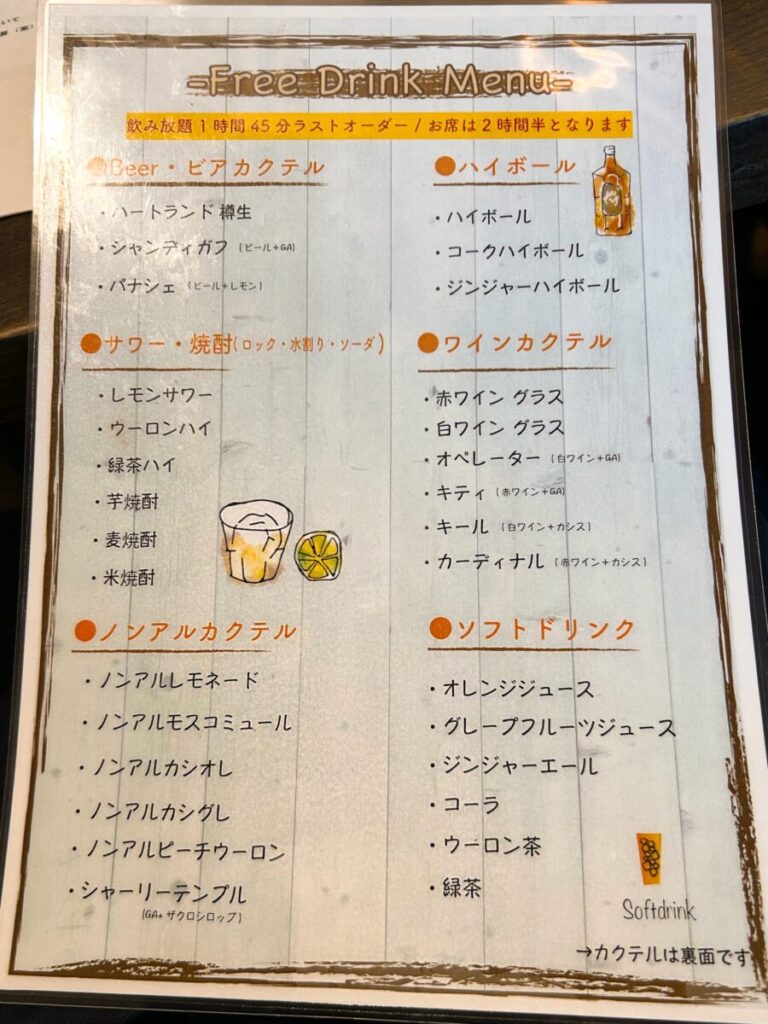 いて
-Free Drink Menu-
飲み放題1時間45分ラストオーダー / お席は2時間半となります
●Beer・ビアカクテル
・ハートランド 樽生
・シャンディガフ (ビール+GA)
・パナシェ (ビール+レモン)
●ハイボール
・ハイボール
・コークハイボール
・ジンジャーハイボール
●サワー・焼酎(ロック・水割り・ソーダ)
・レモンサワー
・ウーロンハイ
・緑茶ハイ
・芋焼酎
・麦焼酎
・米焼酎
●ワインカクテル
・赤ワイン グラス
・白ワイン グラス
・オペレーター (白ワイン+GA)
・キティ (赤ワイン+GA)
・キール (白ワイン+カシス)
・カーディナル (赤ワイン+カシス)
●ノンアルカクテル
・ノンアルレモネード
・ノンアルモスコミュール
・ノンアルカシオレ
・ノンアルカシグレ
・ノンアルピーチウーロン
・シャーリーテンプル
(GA+ザクロシロップ)
●ソフトドリンク
・オレンジジュース
・グレープフルーツジュース
・ジンジャーエール
・コーラ
・ウーロン茶
・緑茶
Softdrink
→カクテルは裏面です